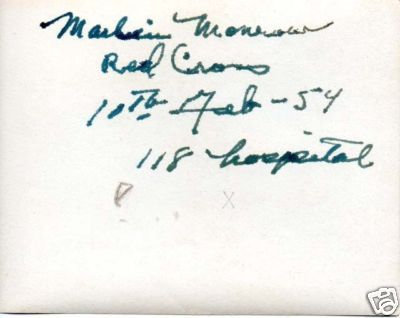 Marlein Monrow
Red Cross
10th Feb - 54
118 hospital
x